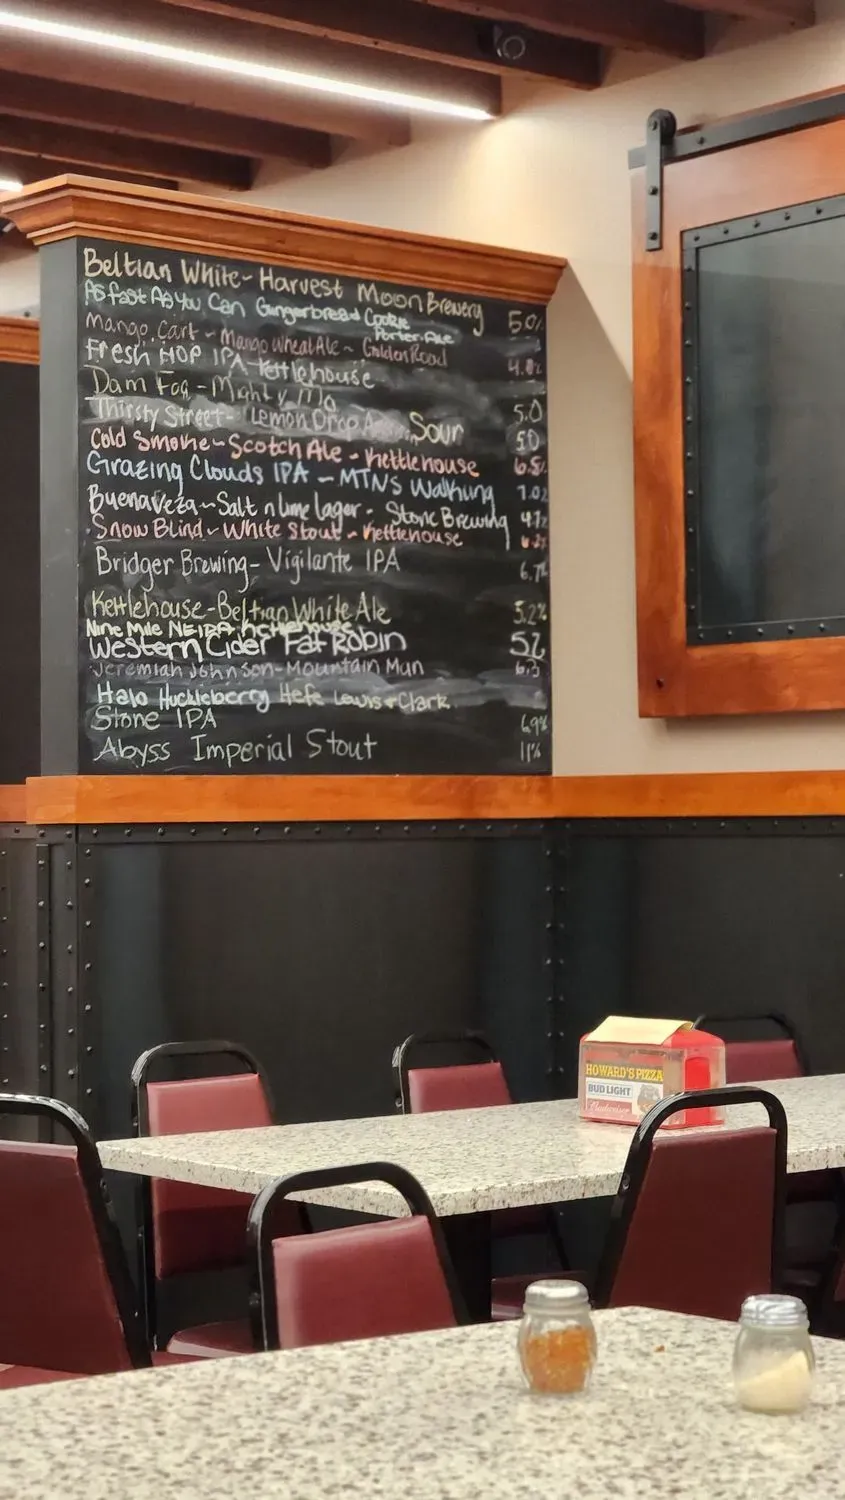 Beltian White - Harvest Moon Brewery 5.0%
As Fast As You Can Gingerbread Cookie
Porter. Ale
Mango Cart - Mango Wheat Ale - Golden Road 4.0%
Fresh HOP IPA - Kettlehouse
Dam Fog - Mighty Mo 5.0
Thirsty Street - Lemon Drop Sour 5.0
Cold Smoke - Scotch Ale - Kettlehouse 6.5%
Grazing Clouds IPA - MTNS Walking 7.0%
Buenaveza - Salt n lime lager - Stone Brewing 4.7%
Snow Blind - White Stout - Kettlehouse
Bridger Brewing - Vigilante IPA 6.7%
Kettlehouse - Beltian White Ale 5.2%
Nine Mile NEIPA Kettlehouse
Western Cider Fat Robin
Jeremiah Johnson - Mountain Man 6.3
Halo Huckleberry Hefe Lewis + Clark
Stone IPA 6.9%
Abyss Imperial Stout 11%
HOWARD'S PIZZA
BUD LIGHT
Budweiser